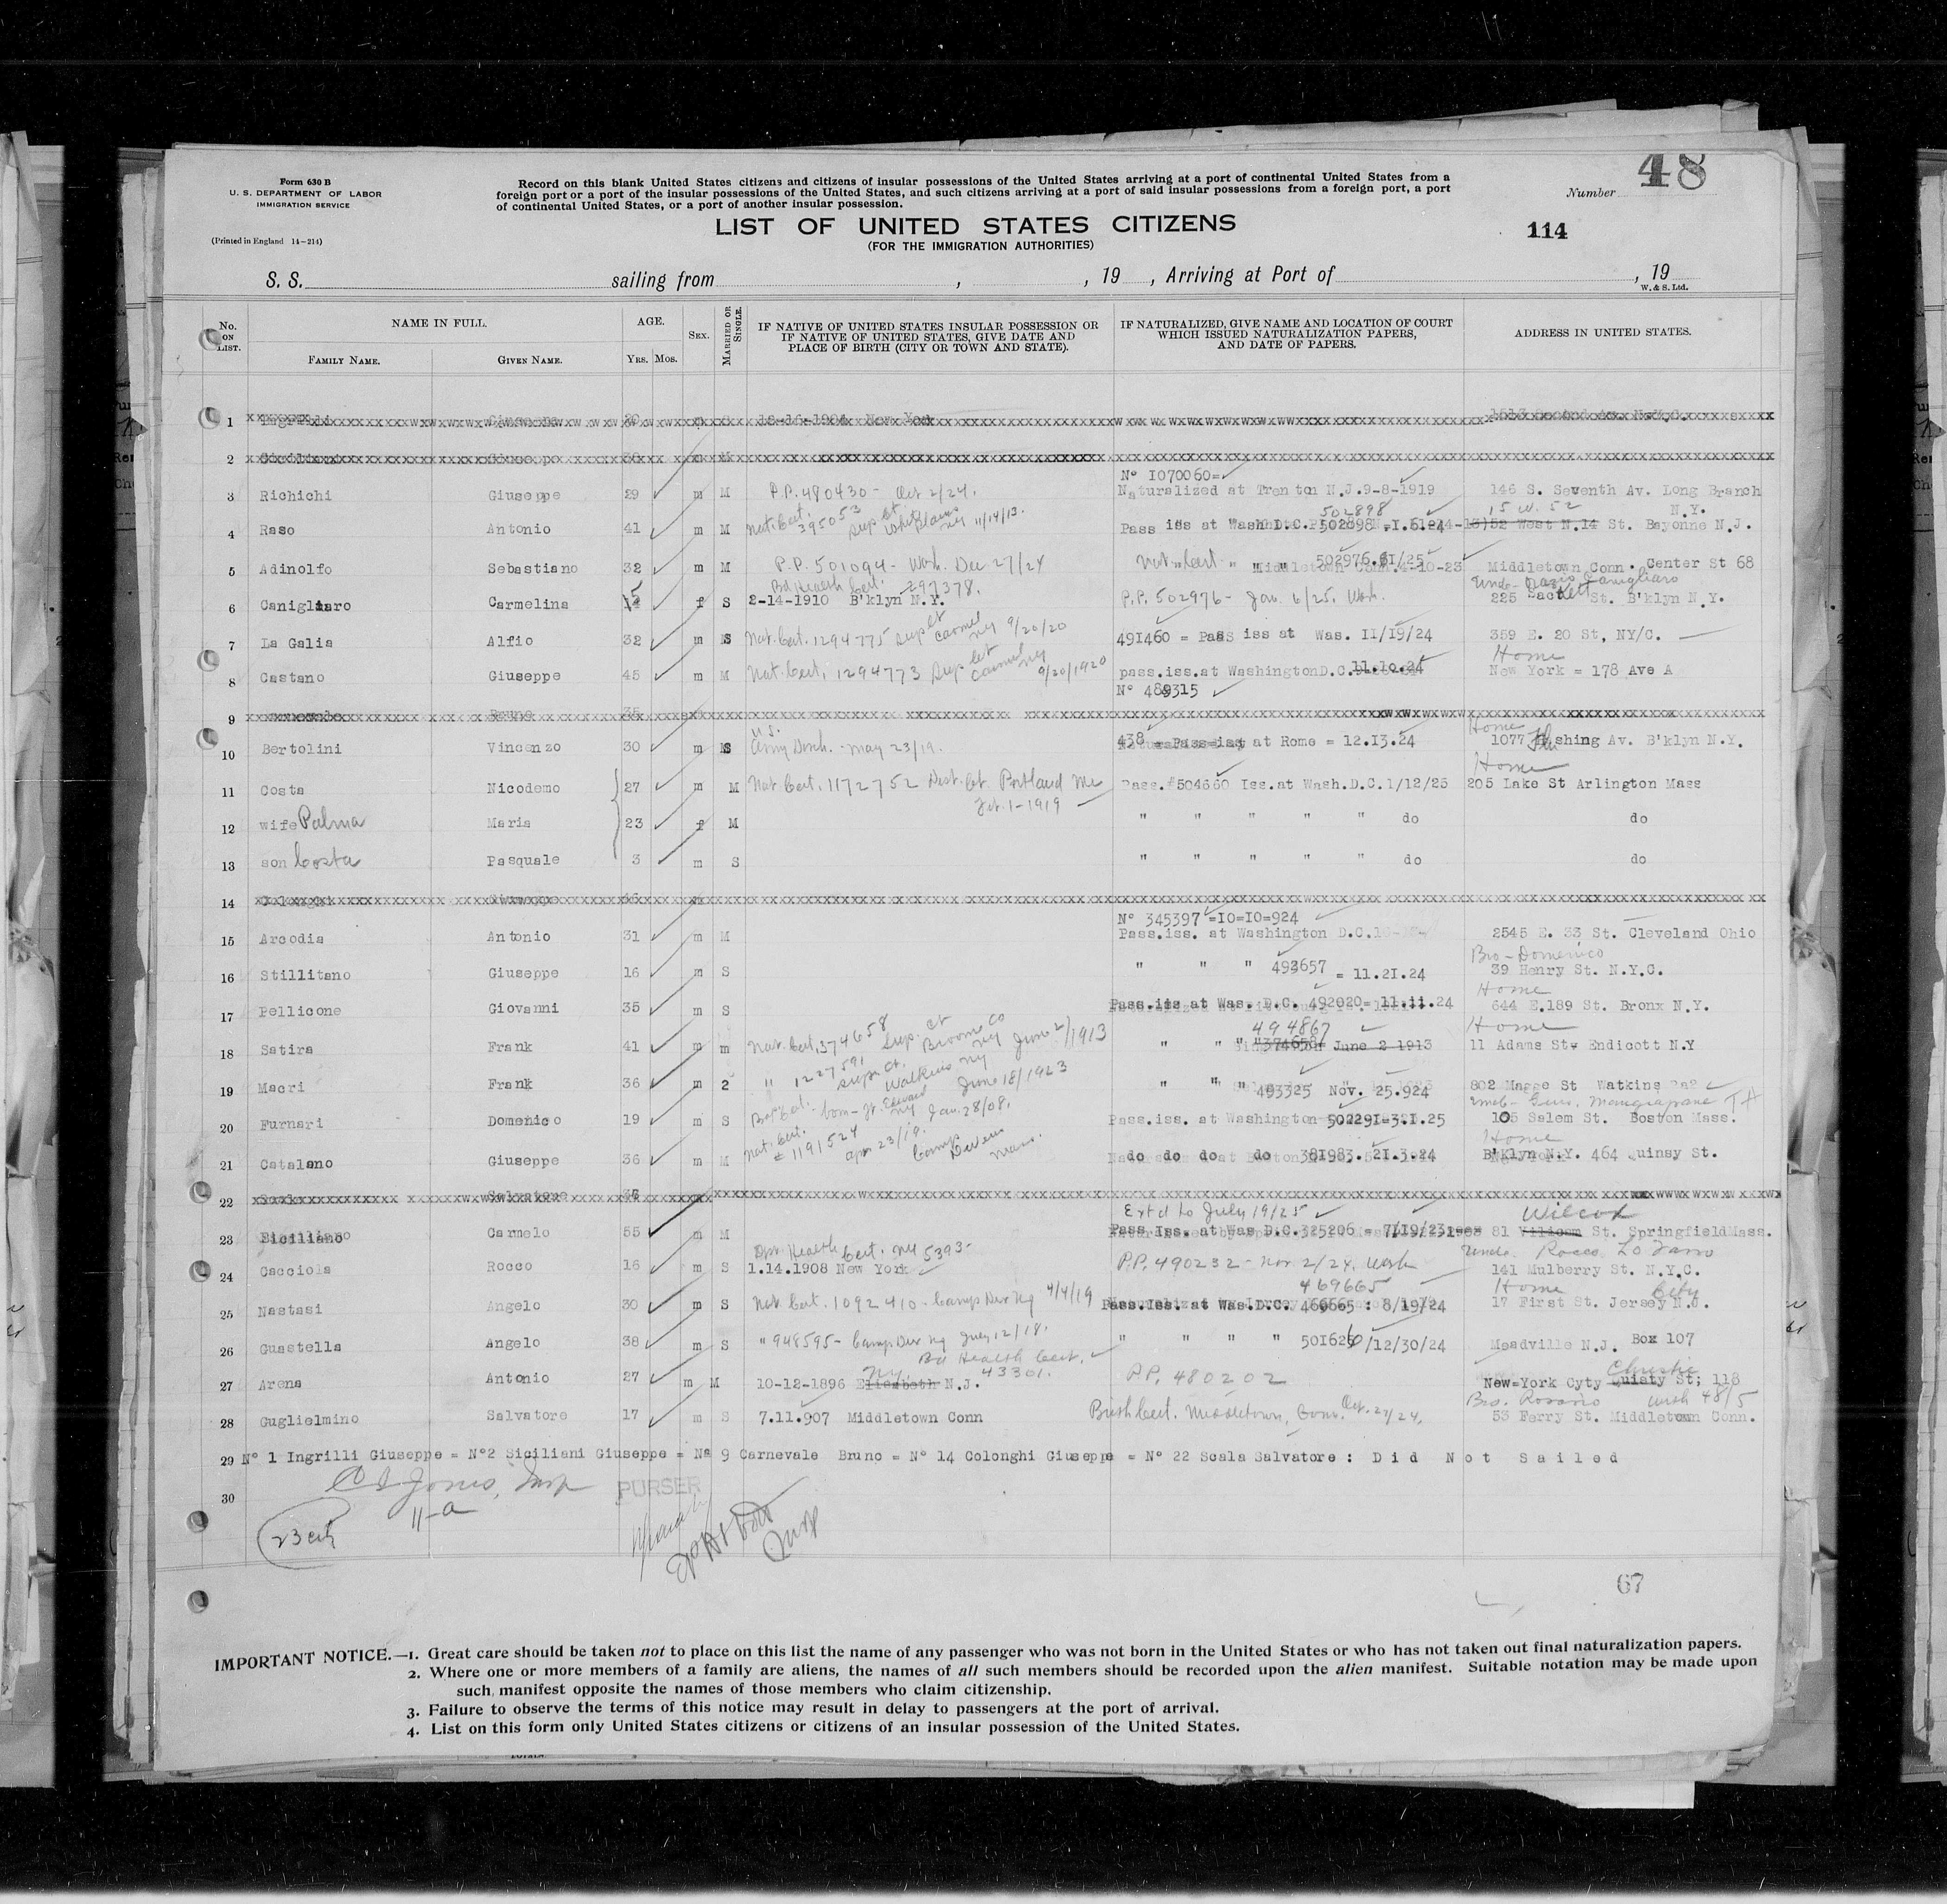 48
Form 630 B
U. S. DEPARTMENT OF LABOR
IMMIGRATION SERVICE
(Printed in England 14-214)
Record on this blank United States citizens and citizens of insular possessions of the United States arriving at a port of continental United States from a
foreign port or a port of the insular possessions of the United States, and such citizens arriving at a port of said insular possessions from a foreign port, a port
of continental United States, or a port of another insular possession.
Number
LIST OF UNITED STATES CITIZENS
(FOR THE IMMIGRATION AUTHORITIES)
114
S. S. sailing from , , 19 , Arriving at Port of , 19
W. & S. Ltd.
No. ON LIST. NAME IN FULL. FAMILY NAME. GIVEN NAME. AGE. YRS. MOS. SEX. MARRIED OR SINGLE. IF NATIVE OF UNITED STATES INSULAR POSSESSION OR IF NATIVE OF UNITED STATES, GIVE DATE AND PLACE OF BIRTH (CITY OR TOWN AND STATE). IF NATURALIZED, GIVE NAME AND LOCATION OF COURT WHICH ISSUED NATURALIZATION PAPERS, AND DATE OF PAPERS. ADDRESS IN UNITED STATES.
1
2
Nº 1070060=
3 Richichi Giuseppe 29 m M P.P. 480430 - Oct 2/24. Naturalized at Trenton N.J.9-8-1919 146 S. Seventh Av. Long Branch
502898 15 W. 52 N.Y.
4 Raso Antonio 41 m M Nat. Cert. 395053 Sup Ct White Plains NY 11/14/13. Pass iss at Wash D.C. 502098 -I.6.24 52 West N.14 St. Bayonne N.J.
5 Adinolfo Sebastiano 32 m M P.P. 501094 - Wash. Dec 27/24 Nat. Cert. " " 502976.6I/25 Middletown Conn.4-10-23 Middletown Conn. Center St 68
Bd Health Cert. 297378.
6 Canigliaro Carmelina 15 f S 2-14-1910 B'klyn N.Y. P.P. 502976 - Jan. 6/25. Wash. 225 Sackett St. B'klyn N.Y.
7 La Galia Alfio 32 m S Nat. Cert. 1294775 Sup Ct Carmel NY 9/20/20 491460 = Pass iss at Was. II/I9/24 359 E. 20 St, NY/C.
Home
8 Castano Giuseppe 45 m M Nat. Cert. 1294773 Sup Ct Carmel NY 9/20/1920 pass.iss.at WashingtonD.C.11.10.24 New York = 178 Ave A
Nº 489315
9
Home
10 Bertolini Vincenzo 30 m S U.S. Army Disch. - May 23/19. 438 = Pass=iss at Rome = 12.I3.24 1077 Flushing Av. B'klyn N.Y.
Home
11 Costa Nicodemo 27 m M Nat. Cert. 1172752 Dist. Ct Portland Me 1-1919 Pass.#504660 Iss.at Wash.D.C.1/12/25 205 Lake St Arlington Mass
12 wife Palma Maria 23 f M " " " " " do do
13 son Costa Pasquale 3 m S " " " " " do do
14
Nº 345397 =IO=IO=924
15 Arcodia Antonio 31 m M Pass.iss. at Washington D.C. 2545 E. 33 St. Cleveland Ohio
Bro - Domenico
16 Stillitano Giuseppe 16 m S " " " 493657 = 11.2I.24 39 Henry St. N.Y.C.
Home
17 Pellicone Giovanni 35 m S Pass.iss at Was. D.C. 492020= 11.11.24 644 E.189 St. Bronx N.Y.
494867 Home
18 Satira Frank 41 m m Nat. Cert. 374658 Sup. Ct Broome Co NY June 2/1913 " " " 374658 June 2 1913 11 Adams St Endicott N.Y
19 Macri Frank 36 m 2 " 1227591 Sup Ct. Watkins NY June 18/1923 " " " 493325 Nov. 25.924 802 Magee St Watkins
20 Furnari Domenico 19 m S Birth Cert. born - Ft. Edward NY Jan. 28/08. Pass.iss. at Washington 502291=3.I.25 105 Salem St. Boston Mass.
Home
21 Catalano Giuseppe 36 m M Nat. Cert. # 1191524 Apr 23/19. Camp Devens Mass. do do do do 381983. 2I.3.24 B'klyn N.Y. 464 Quinsy St.
22
Ext'd to July 19/25 Wilcox
23 Siciliano Carmelo 55 m M Pass.Iss. at Was D.C.325206 = 7/19/23 81 St. SpringfieldMass.
Dpt. Health Cert. NY 5393- Uncle Rocco Lo Farro
24 Cacciola Rocco 16 m S 1.14.1908 New York P.P. 490232 - Nov 2/24. Wash 141 Mulberry St. N.Y.C.
469665 Home City
25 Nastasi Angelo 30 m S Nat. Cert. 1092410 - Camp Dix NJ 4/4/19 Pass.Iss. at Was.D.C. 469665 : 8/19/24 17 First St. Jersey N.J.
26 Guastella Angelo 38 m S " 948595 - Camp Dix NJ July 12/18. " " " " 501626/12/30/24 Meadville N.J. Box 107
Bd Health Cert. NY. 43301. Christie
27 Arena Antonio 27 m M 10-12-1896 Elisabeth N.J. P.P. 480202 New=York Cyty Quisty St; 118
Bro. Rosario
28 Guglielmino Salvatore 17 m S 7.11.907 Middletown Conn Birth Cert. Middletown, Conn. Oct. 27/24. 53 Ferry St. Middletown Conn.
29 Nº 1 Ingrilli Giuseppe = Nº2 Siciliani Giuseppe = Nº 9 Carnevale Bruno = Nº 14 Colonghi Giuseppe = Nº 22 Scala Salvatore : Did Not Sailed
30
Jones, Insp
PURSER
11-a
23 cit
67
IMPORTANT NOTICE.—1. Great care should be taken not to place on this list the name of any passenger who was not born in the United States or who has not taken out final naturalization papers.
2. Where one or more members of a family are aliens, the names of all such members should be recorded upon the alien manifest. Suitable notation may be made upon
such manifest opposite the names of those members who claim citizenship.
3. Failure to observe the terms of this notice may result in delay to passengers at the port of arrival.
4. List on this form only United States citizens or citizens of an insular possession of the United States.